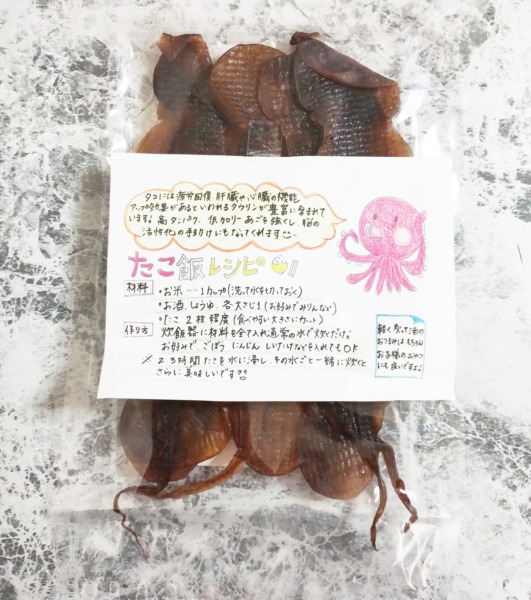 タコには疲労回復 肝臓や心臓の機能
アップ効果があるといわれるタウリンが豊富に含まれて
います。高タンパク、低カロリー あごを強くし、脳の
活性化の手助けにもなってくれます
たこ飯レシピ
材料
・お米 ‥‥ 1カップ(洗って水を切っておく)
・お酒、しょうゆ、各大さじ1(お好みでみりんなど)
・たこ 2枚程度(食べやすい大きさにカット)
作り方
炊飯器に材料を全て入れ通常の水で炊くだけ。
お好みで、ごぼう にんじん しいたけなどを入れてもOK
※2.3時間たこを水に浸し、その水ごと一緒に炊くと
さらに美味しいです!!
軽く炙って酒の
おつまみはもちろん
お子様のおやつ
にも良いですよ♪